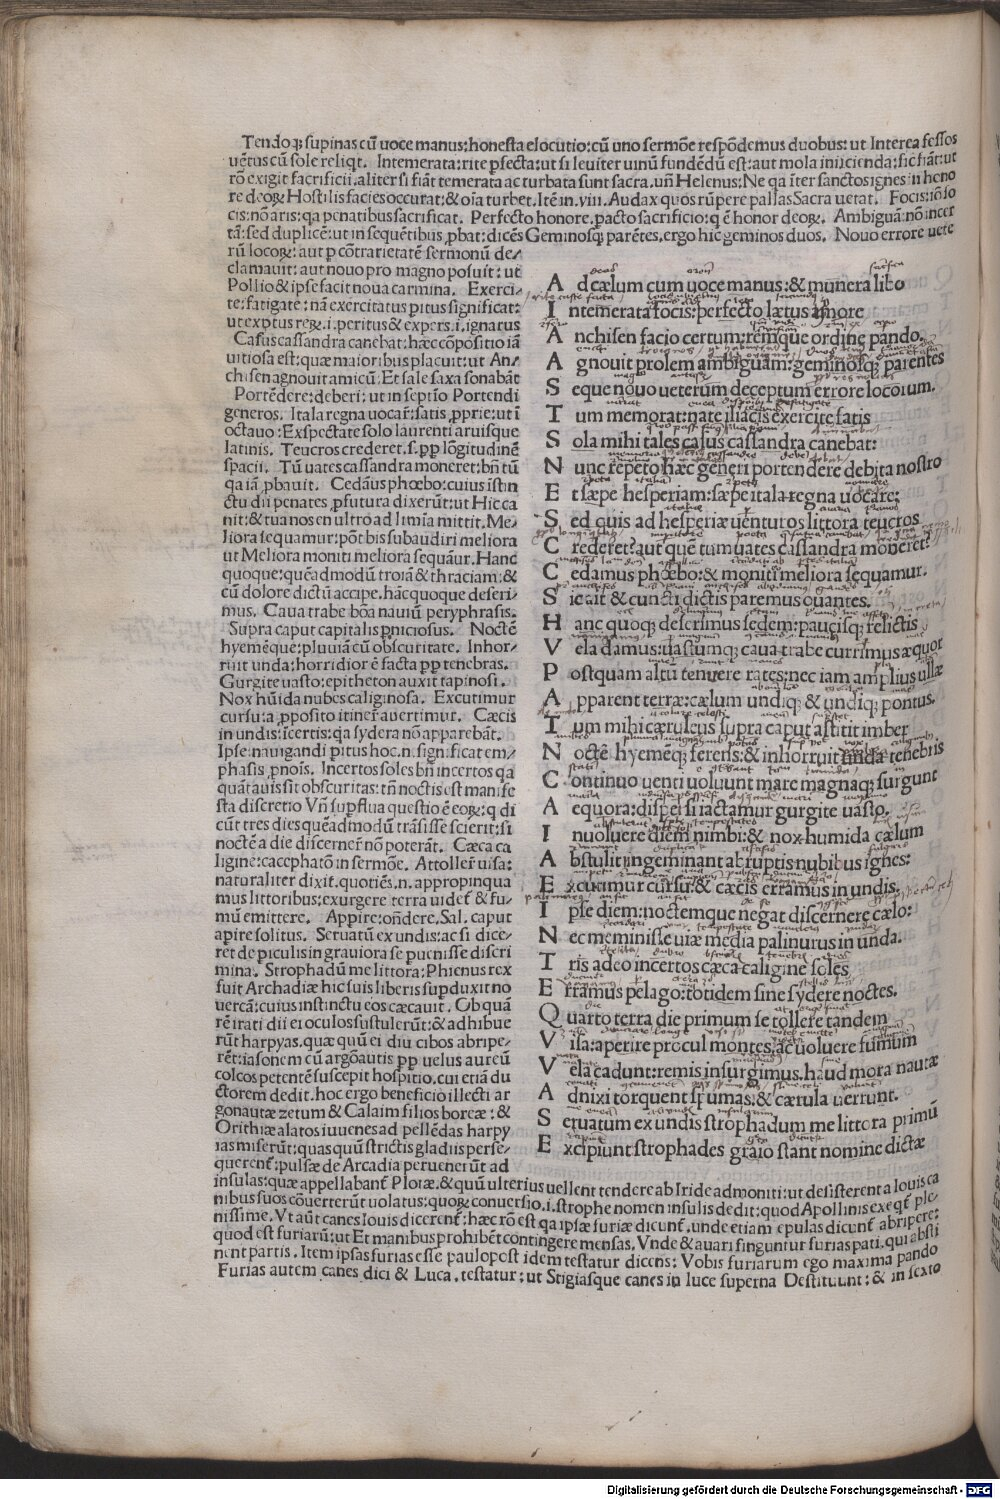 Tendoqꝫ supinas cū uoce manus:honesta elocutio:cū uno sermōe respōdemus duobus:ut Interea fessos
uētus cū sole reliqt. Intemerata:rite pfecta:ut si leuiter uinū fundēdū est:aut mola iniicienda:sic fiāt:ut
rō exigit sacrificii.aliter si fiāt temerata ac turbata sunt sacra.uñ Helenus:Ne qa īter sanctos ignes in hono
re deoꝝ Hostilis facies occurat:&oīa turbet.Itē in.viii. Audax quos rūpere pallas Sacra uetat. Focis:iō fo
cis:nō aris:qa penatibus sacrificat. Perfecto honore.pacto sacrificio:q ē honor deoꝝ. Ambiguā:nō incer
tā:sed duplicē:ut in sequētibus pbat:dicēs Geminosqꝫ parētes.ergo hic geminos duos. Nouo errore uete
rū locoꝝ:aut p cōtrarietatē sermonū de/
clamauit:aut nouo pro magno posuit: ut
Pollio & ipse facit noua carmina. Exerci/
te:fatigate: nā exercitatus pitus significat:
ut exptus reꝝ.i.peritus & expers.i.ignarus
Casus cassandra canebat: hæc cōpositio iā
uitiosa est:quæ maioribus placuit: ut An/
chisen agnouit amicū: Et sale saxa sonabāt
Portēdere:deberi: ut in septīo Portendi
generos. Itala regna uocar̄:satis pprie:ut ī
octauo: Exspectate solo laurenti aruisque
latinis. Teucros crederet.s.pp lōgitudinē
spacii. Tū uates cassandra moneret:bñ tū
qa iā.pbauit. Cedāus phœbo:cuius istin
ctu dii penates pfutura dixerūt:ut Hic ca
nit:& tua nos en ultro ad limīa mittit. Me/
liora sequamur:pōt bis subaudiri meliora
ut Meliora moniti meliora sequāur. Hanc
quoque:quēadmodū troiā & thraciam:&
cū dolore dictū accipe.hāc quoque deseri/
mus. Caua trabe bōa nauiū peryphrasis.
Supra caput capitalis pniciosus. Noctē
hyemēque:pluuiā cū obscuritate. Inhor/
ruit unda:horridior ē facta pp tenebras.
Gurgite uasto:epitheton auxit tapinosi.
Nox hūida nubes caliginosa. Excutimur
cursu:a pposito itiner̄ auertimur. Cæcis
in undis:īcertis:qa sydera nō apparebāt.
Ipse:nauigandi pitus hoc.n.significat em/
phasis pnois. Incertos soles bñ incertos qa
quātauis sit obscuritas:tñ noctis est manife
sta discretio Vñ supflua questio ē eoꝝ:q di
cūt tres dies quēadmodū trāsisse scierit:si
noctē a die discerner̄ nō poterāt. Cæca ca
ligine:cacephatō in sermōe. Attoller̄ uisa:
naturaliter dixit.quotiēs.n.appropinqua
mus littoribus:exurgere terra uidet̄ & fu/
mū emittere. Appire:oñdere,Sal.caput
apire solitus. Seruatū ex undis:ac si dice/
ret de piculis in grauiora se puenisse discri
mina. Strophadū me littora:Phienus rex
fuit Archadiæ hic suis liberis supduxit no
uercā:cuius instinctu eos cæcauit. Ob quā
rē irati dii ei oculos sustulerūt:& adhibue
rūt harpyas.quæ quū ei diu cibos abripe/
rēt:iasonem cū argōautis pp uelus aureū
colcos petentē suscepit hospitio.cui etiā du
ctorem dedit.hoc ergo beneficio illecti ar
gonautæ zetum & Calaim filios boreæ: &
Orithiæ alatos iuuenes ad pellēdas harpy
ias miserūt:quas quū strictis gladiis perse/
querent̄:pulsæ de Arcadia peruenerūt ad
insulas:quæ appellabant̄ Plotæ.& quū ulterius uellent tendere ab Iride admoniti:ut desisterent a Iouis ca
nibus suos cōuerterūt uolatus:quoꝝ conuersio.i.strophe nomen insulis dedit:quod Apollinis exeqt̄ ple/
nissime.Vt aūt canes Iouis dicerent̄:hæc rō est qa ipsæ furiæ dicunt̄.unde etiam epulas dicunt̄ abripere:
quod est furiarū:ut Et manibus prohibēt contingere mensas.Vnde & auari finguntur furias pati.qui absti
nent partis.Item ipsas furias esse paulopost idem testatur dicens: Vobis furiarum ego maxima pando
Furias autem canes dici & Luca.testatur:ut Stigiasque canes in luce superna Destituunt:& in sexto
A d cælum cum uoce manus:& munera libo
I ntemerata focis:perfecto lætus honore
A nchisen facio certum:remque ordine pando.
A gnouit prolem ambiguam:geminosqꝫ parentes
S eque nouo ueterum deceptum errore locorum.
T um memorat:nate iliacis exercite fatis
S ola mihi tales casus cassandra canebat:
N unc repeto hæc generi portendere debita nostro
E t sæpe hesperiam:sæpe itala regna uocare:
S ed quis ad hesperiæ uenturos littora teucros
C rederet?aut quē tum uates cassandra moneret?
C edamus phœbo:& moniti meliora sequamur.
S ic ait & cuncti dictis paremus ouantes.
H anc quoqꝫ deserimus sedem:paucisqꝫ relictis
V ela damus:uastumqꝫ caua trabe currimus æquor
P ostquam altū tenuere rates:nec iam amplius ullæ
A pparent terræ:cælum undiqꝫ & undiqꝫ pontus.
T um mihi cæruleus supra caput astitit imber
N octē hyemēqꝫ ferens:& inhorruit unda tenebris
C ontinuo uenti uoluunt mare magnaqꝫ surgunt
A equora:dispersi iactamur gurgite uasto.
I nuoluere diem nimbi:& nox humida cælum
A bstulit:ingeminant abruptis nubibus ignes:
E xcutimur cursu:& cæcis erramus in undis.
I pse diem:noctemque negat discernere cælo:
N ec meminisse uiæ media palinurus in unda.
T ris adeo incertos cæca caligine soles
E rramus pelago:totidem sine sydere noctes.
Q uarto terra die primum se tollere tandem
V isa:aperire procul montes:ac uoluere fumum
V ela cadunt:remis insurgimus.haud mora nautæ
A dnixi torquent spumas:& cærula uerrunt.
S eruatum ex undis strophadum me littora primū
E xcipiunt:strophades graio stant nomine dictæ
Digitalisierung gefördert durch die Deutsche Forschungsgemeinschaft - DFG